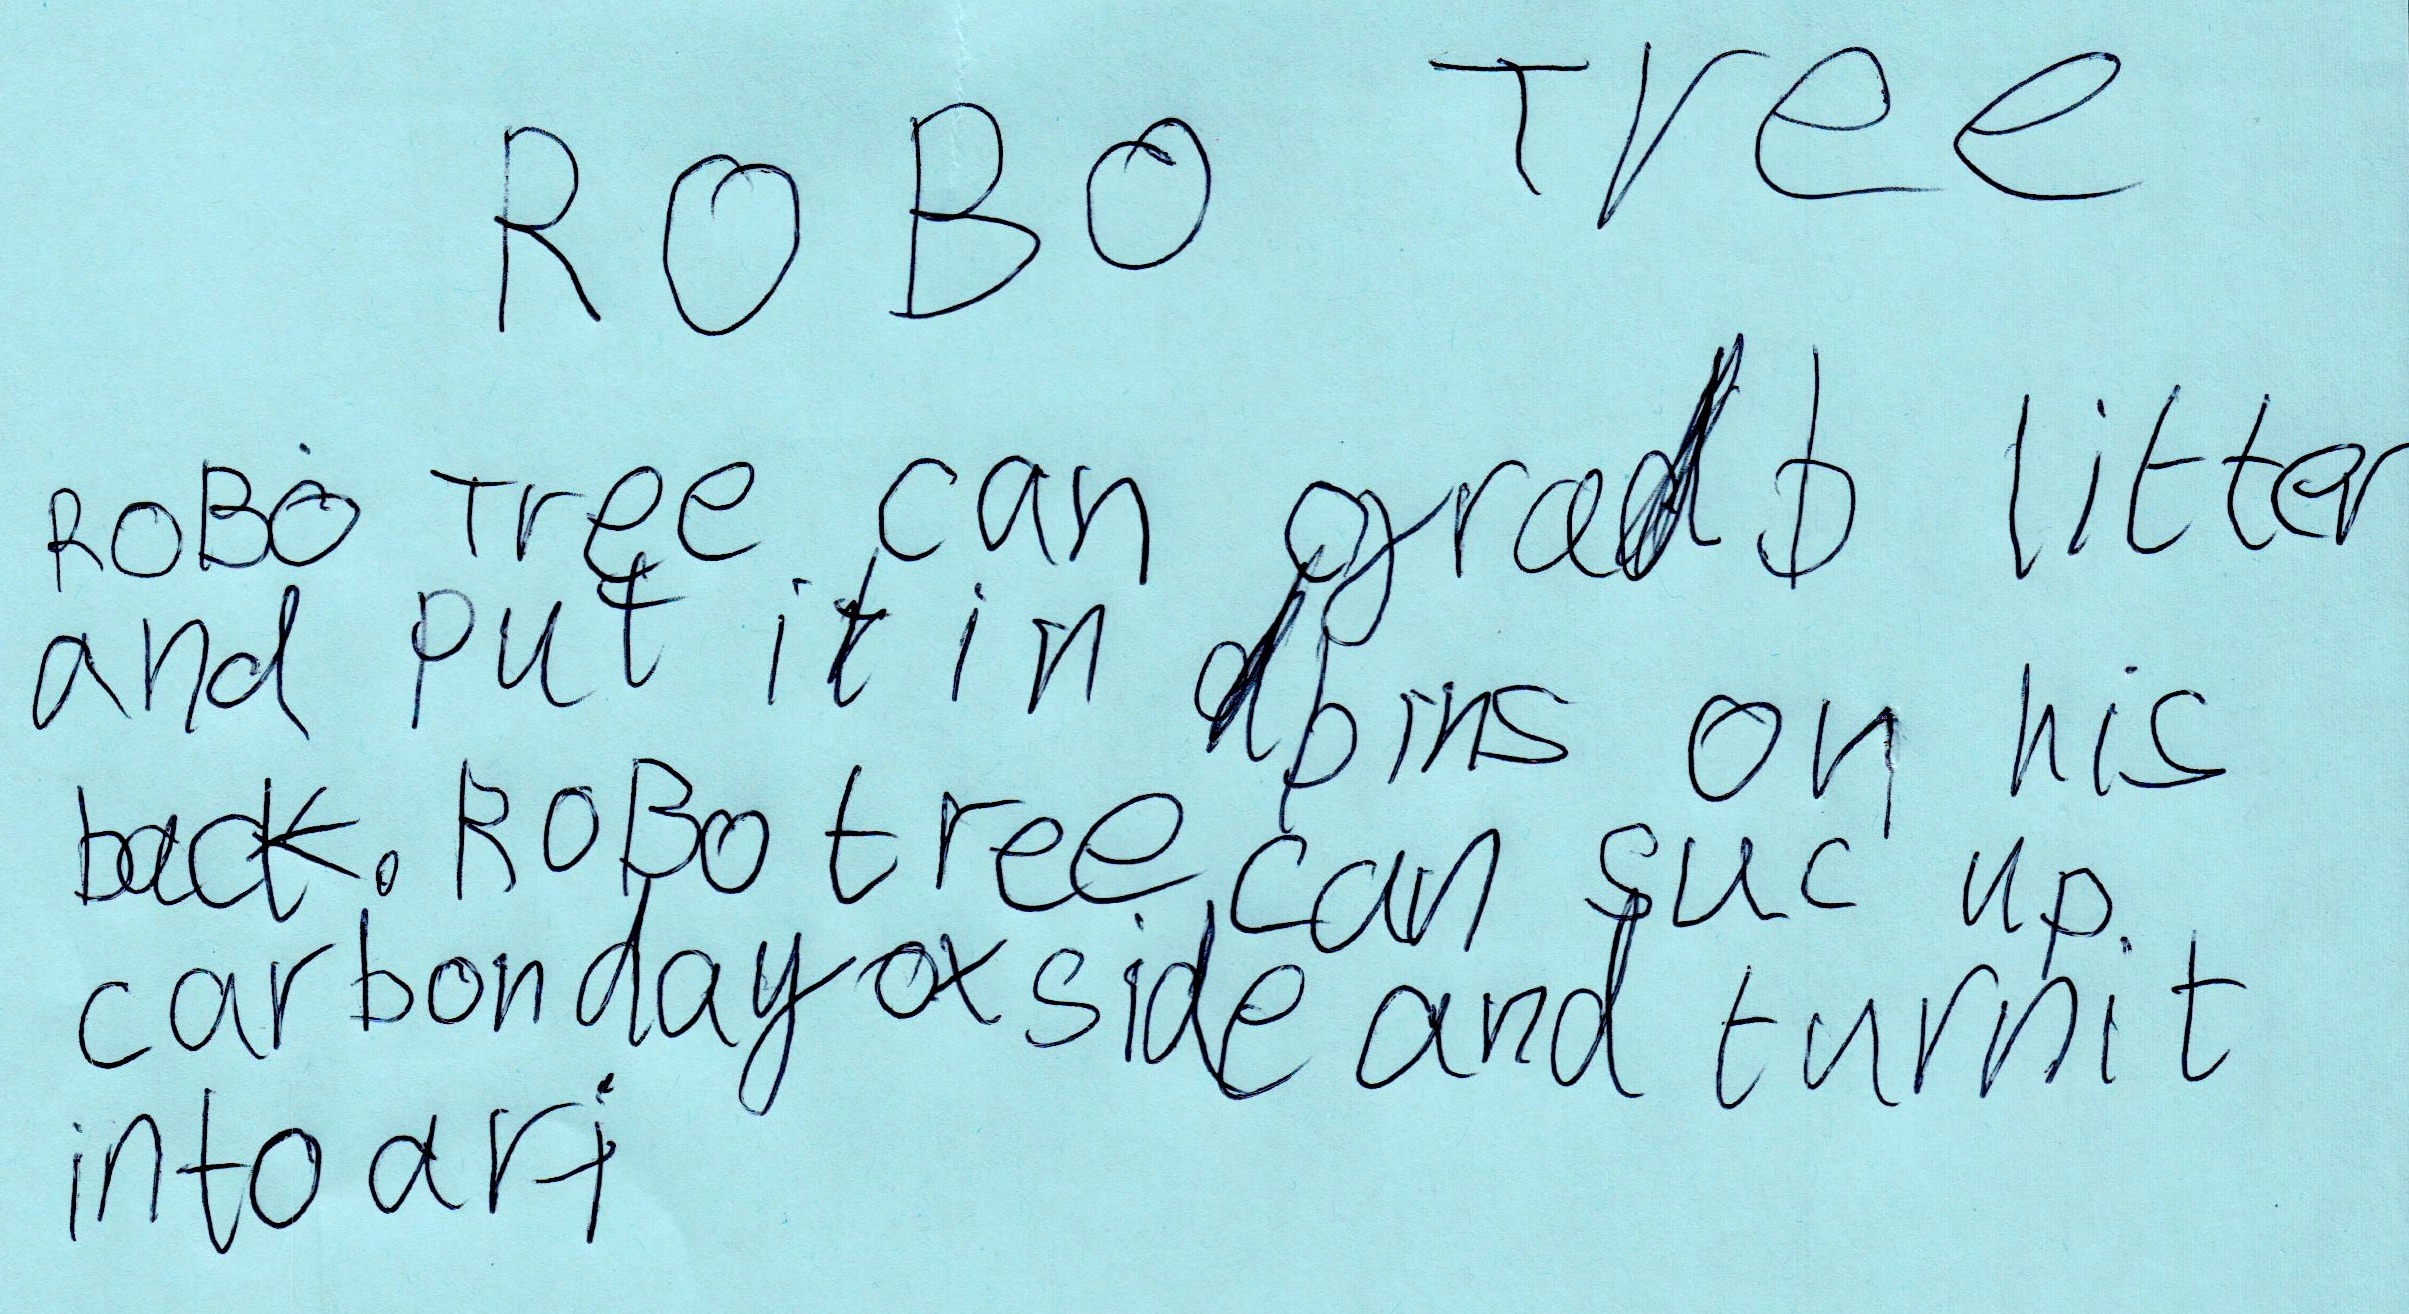 ROBO Tree
ROBO Tree can grab litter
and put it in bins on his
back. ROBO tree can suc up
carbondayoxside and turnit
into ari